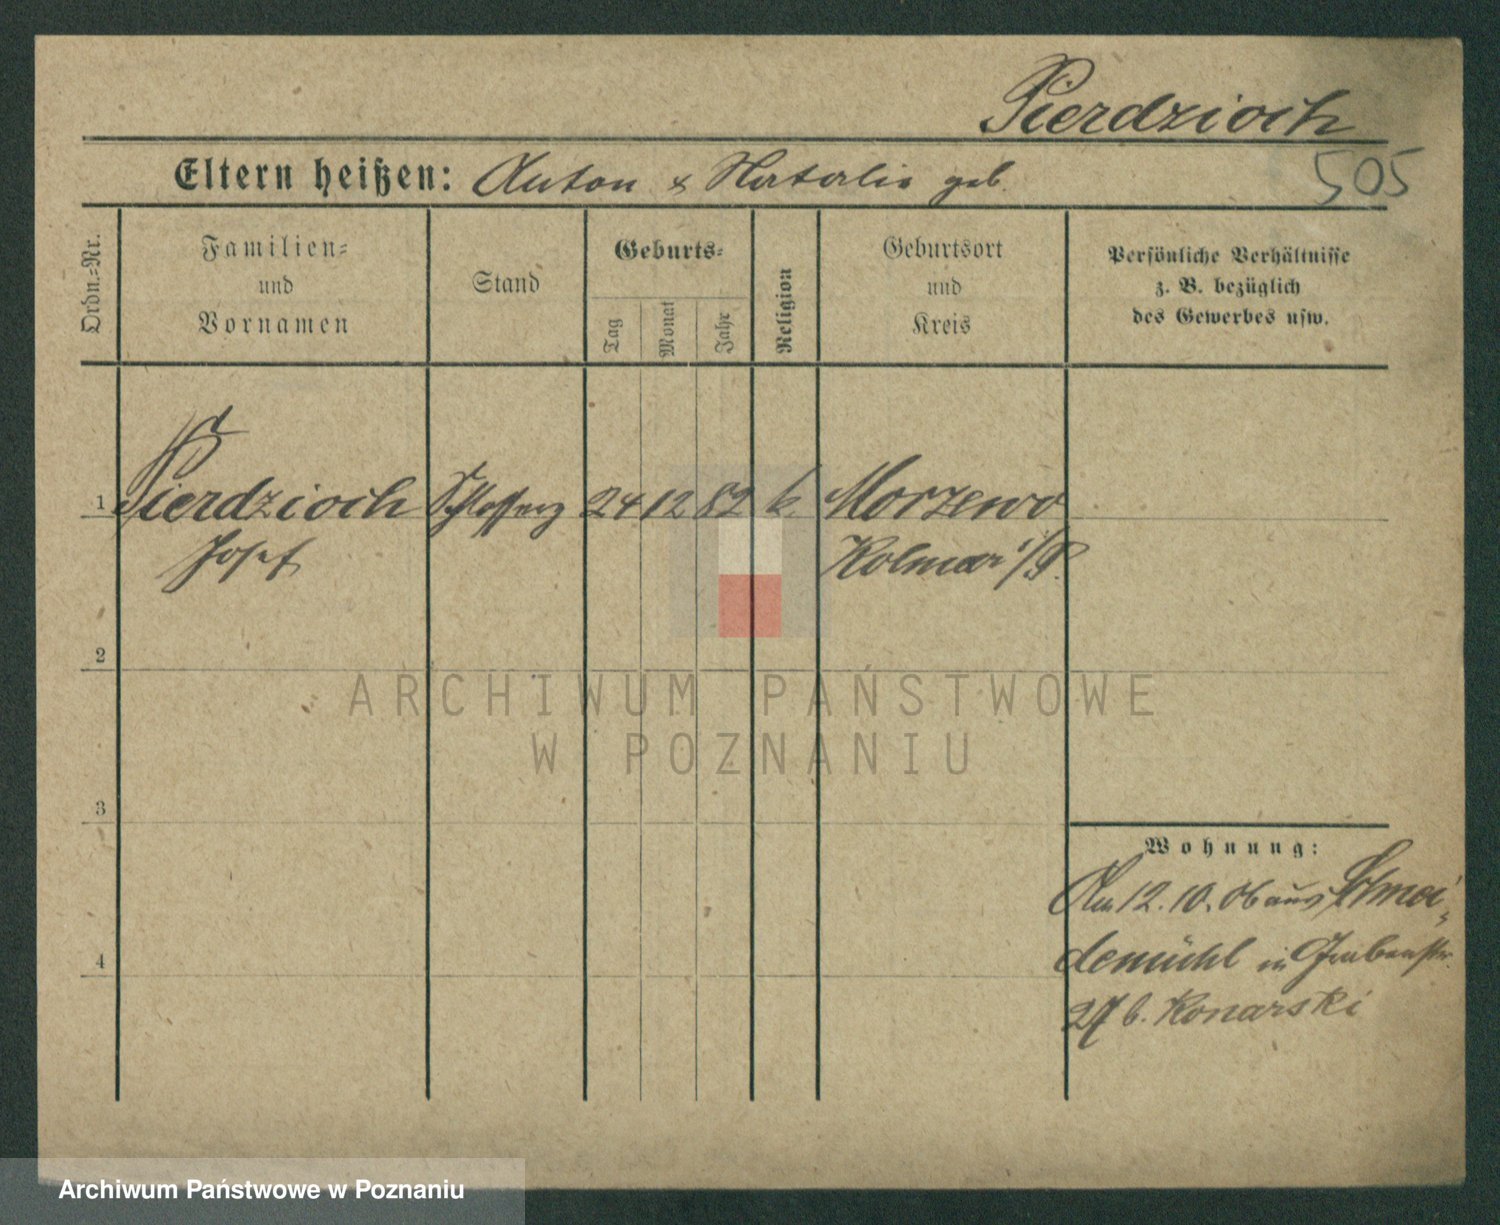 Pierdzioch
Eltern heißen: Anton & Natalie geb.
505
Ordn.-Nr.
Familien-
und
Vornamen
Stand
Geburts-
Tag
Monat
Jahr
Religion
Geburtsort
und
Kreis
Persönliche Verhältnisse
z. B. bezüglich
des Gewerbes usw.
1 Pierdzioch 24 12 82 k. Morzewo
Josef Kolmar i/P.
2
3
4
Wohnung:
Am 12. 10. 06 aus Schnei-
demühl in Grabenstr.
27 b. Konarski
ARCHIWUM PAŃSTWOWE
W POZNANIU
Archiwum Państwowe w Poznaniu